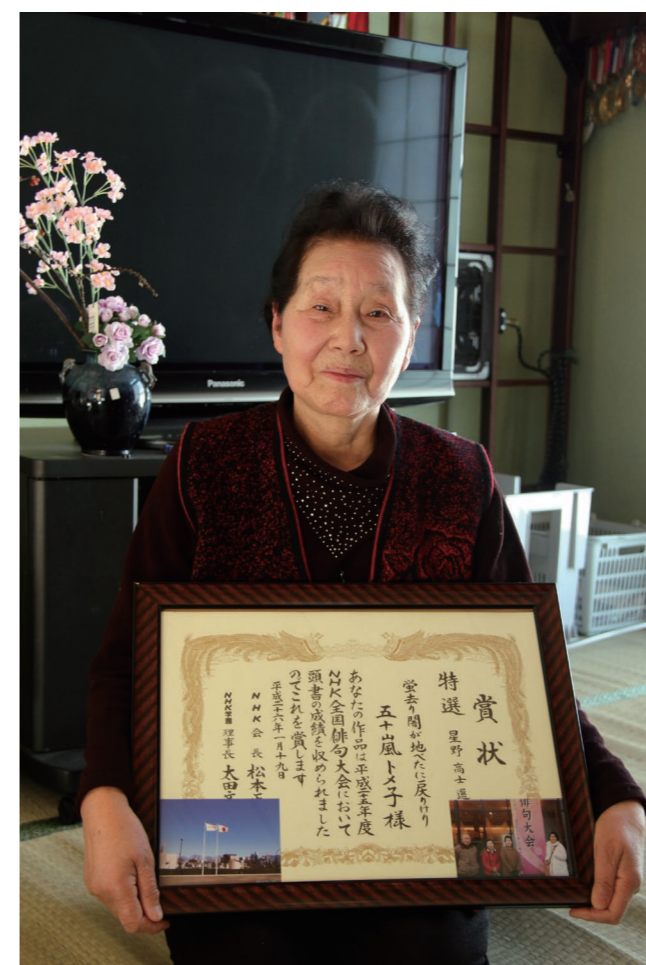 Panasonic
賞状
特選 星野 高士 選
螢去り闇が地べたに戻りけり
五十嵐トメ子 様
あなたの作品は平成二十五年度
NHK全国俳句大会において
頭書の成績を収められました
のでこれを賞します
平成二十六年一月十九日
NHK会長 松本
NHK学園 理事長 太田
俳句大会